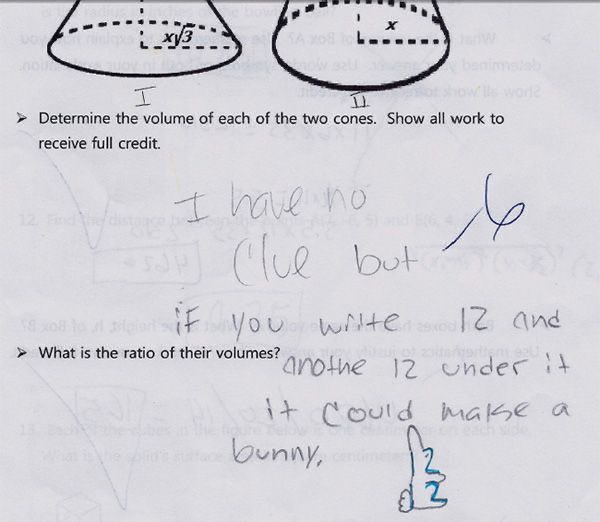 x√3
x
I
II
➢ Determine the volume of each of the two cones. Show all work to
receive full credit.
I have no
Clue but
-6
if you write 12 and
➢ What is the ratio of their volumes?
anothe 12 under it
it could make a
bunny.
12
2